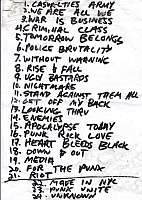 1. CASUALTIES ARMY
2. WE ARE ALL WE
3. WAR IS BUSINESS
4. CRIMINAL CLASS
5. TOMORROW BELONGS
6. POLICE BRUTALITY
7. WITHOUT WARNING
8. RISE & FALL
9. UGLY BASTARDS
10. NIGHTMARE
11. STAND AGAINST THEM ALL
12. GET OFF MY BACK
13. LOOKING THRU
14. ENEMIES
15. APOCALYPSE TODAY
16. PUNK ROCK LOVE
17. HEART BLEEDS BLACK
18. DOWN & OUT
19. MEDIA
20. FOR THE PUNX
21. RIOT
22. MADE IN NYC
23. PUNX UNITE
24. UNKNOWN